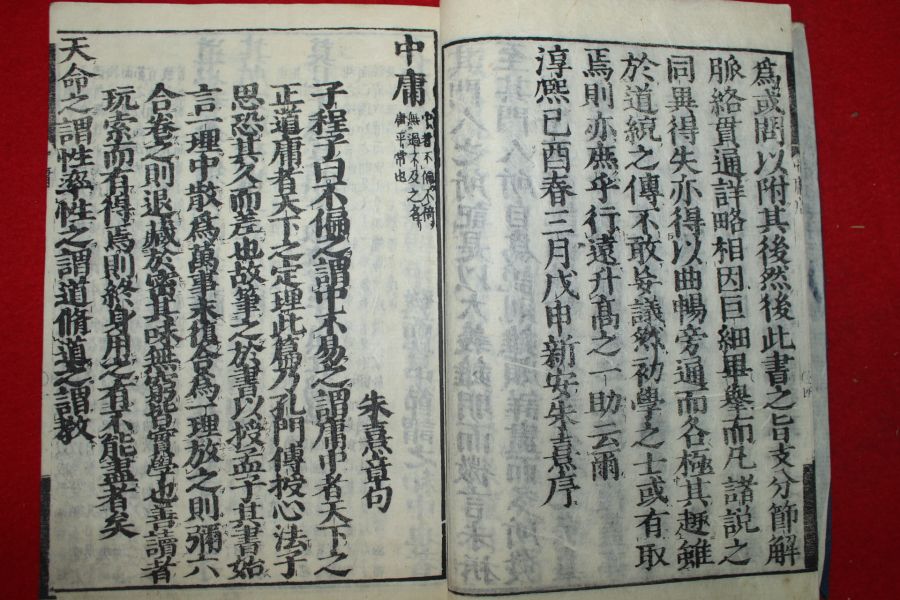 爲或問以附其後然後此書之旨支分節解
脈絡貫通詳略相因巨細畢舉而凡諸說之
同異得失亦得以曲暢旁通而各極其趣雖
於道統之傳不敢妄議然初學之士或有取
焉則亦庶乎行遠升高之一助云爾
淳熙己酉春三月戊申新安朱熹序
中庸
中者不偏不倚
無過不及之名
庸平常也
朱熹章句
子程子曰不偏之謂中不易之謂庸中者天下之
正道庸者天下之定理此篇乃孔門傳授心法子
思恐其久而差也故筆之於書以授孟子其書始
言一理中散爲萬事末復合爲一理放之則彌六
合卷之則退藏於密其味無窮皆實學也善讀者
玩索而有得焉則終身用之有不能盡者矣
天命之謂性率性之謂道脩道之謂教